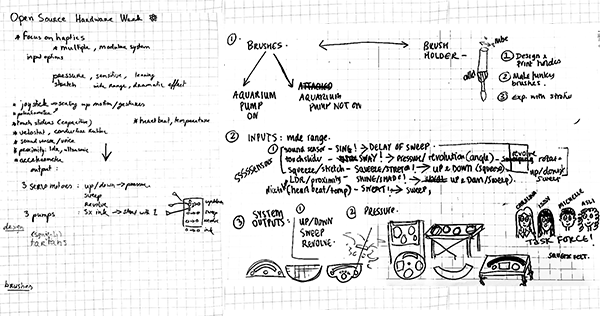 Open Source Hardware Week
* Focus on haptics
* multiple, modular system
input options
pressure, sensitive, leaning
stretch wide range, dramatic effect
* joystick → scaling up motion/gestures
* potentiometer
* touch sliders (capacitive)
* heartbeat, temperature
* velostat, conductive rubber
* sound sensor/voice
* proximity: ldr, ultrasonic
* accelerometer
output:
3 servo motors: up/down → pressure
sweep
Revolve
3 pumps: 3x ink → start with 1
tartans
brushes
①
BRUSHES.
BRUSH
HOLDER -
tube
① Design &
Print holders
② Make funky
brushes.
③ Exp. with straw
AQUARIUM
PUMP
ON
ATTACHED
AQUARIUM
PUMP NOT ON
② INPUTS: wide range.
① sound sensor - SING! → DELAY OF SWEEP.
touch slider - SWAY! → PRESSURE/revolution (angle) -
revolve
SSSSSENSOR
Squeeze/stretch - SQUEEZE/STRETCH! → UP & DOWN (squeeze)
up/down
sweep
LDR/proximity - SHINE/SHADE! → UP & DOWN/SWEEP).
(heart beat/temp) → SWEAT! → SWEEP,
③ SYSTEM
OUTPUTS:
①
UP/DOWN
SWEEP
REVOLVE.
② PRESSURE.
CAROLINA
MICHELLE
ASLI
TASK FORCE!